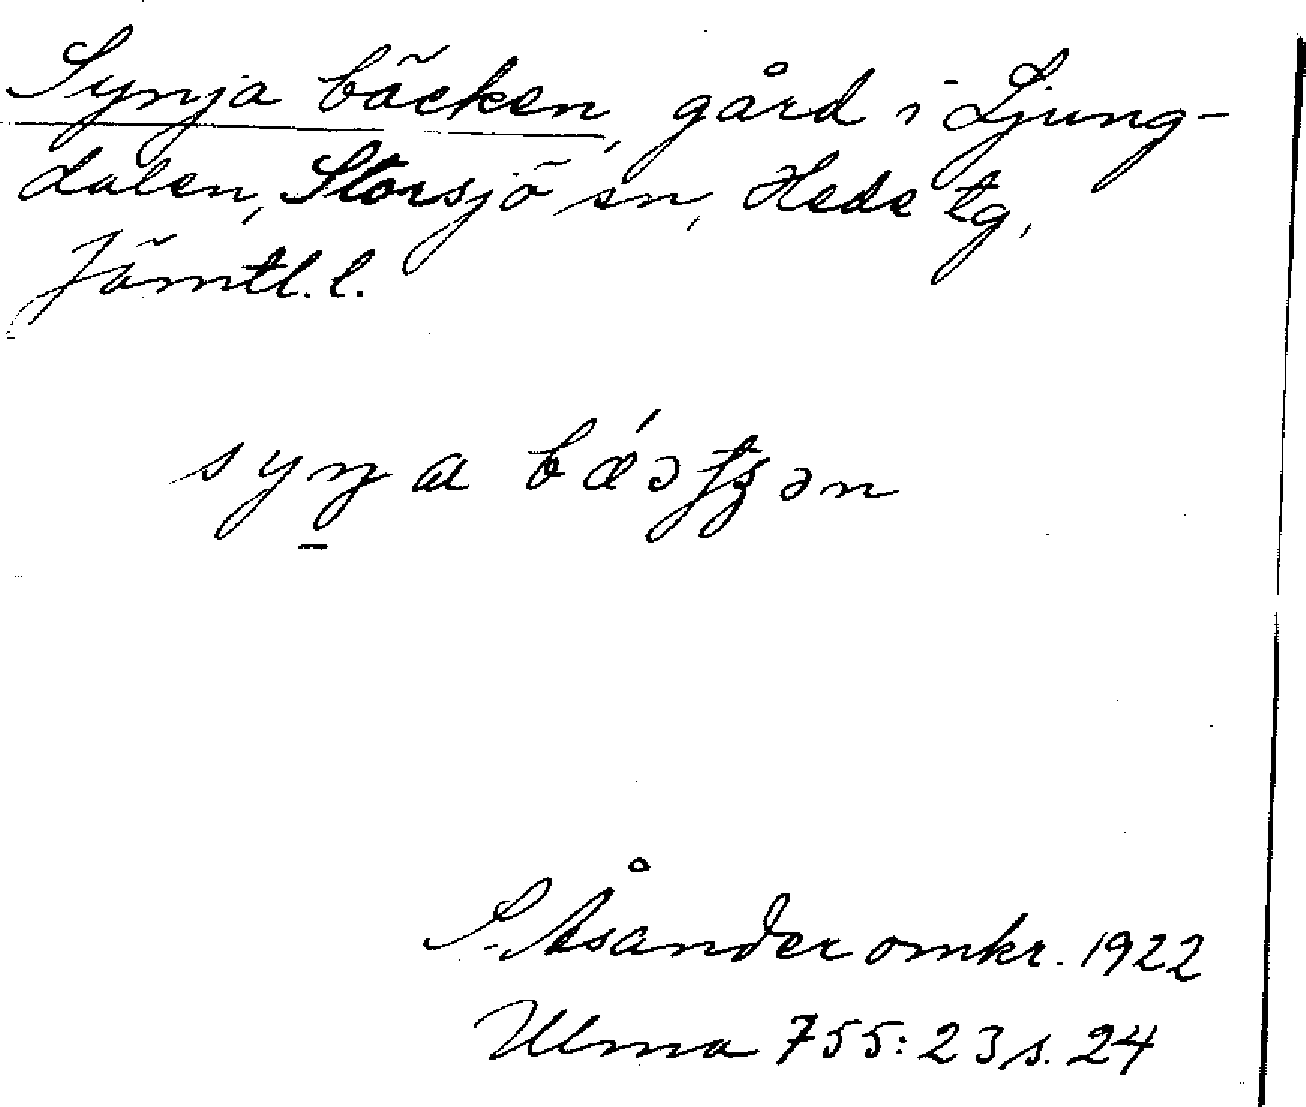 Synja bäcken, gård i Ljung-
dalen, Storsjö sn, Hede tg,
Jämtl. l.
S. Åsander omkr. 1922
Ulma 755:23 s. 24